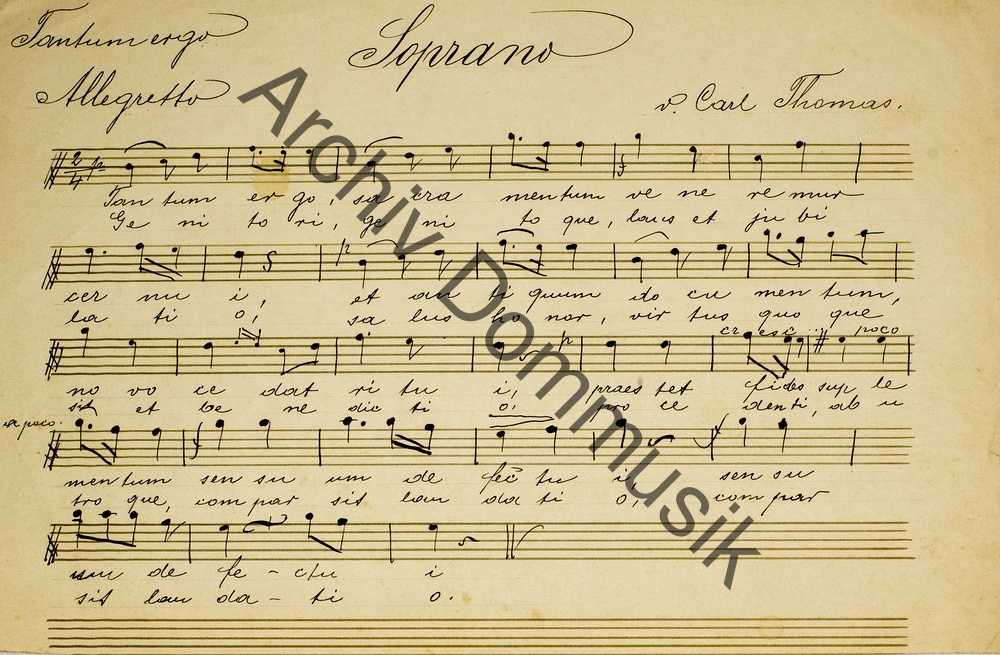 Tantum ergo
Soprano
Allegretto
v. Carl Thomas.
Archiv Dommusik
Tan tum er go, sa cra mentum ve ne re mur
Ge ni to ri, ge ni to que, laus et ju bi
cer nu i, et an ti quum do cu men tum,
la ti o, sa lus ho nor, vir tus quo que
cresc... poco
no vo ce dat ri tu i, praes tet fides sup le
sit et be ne dic ti o, pro ce denti, ab u
a poco.
mentum sen su um de fec tu i, sen su
tro que, com par sit lau da ti o, com par
um de fe - ctu i
sit lau da - ti o.